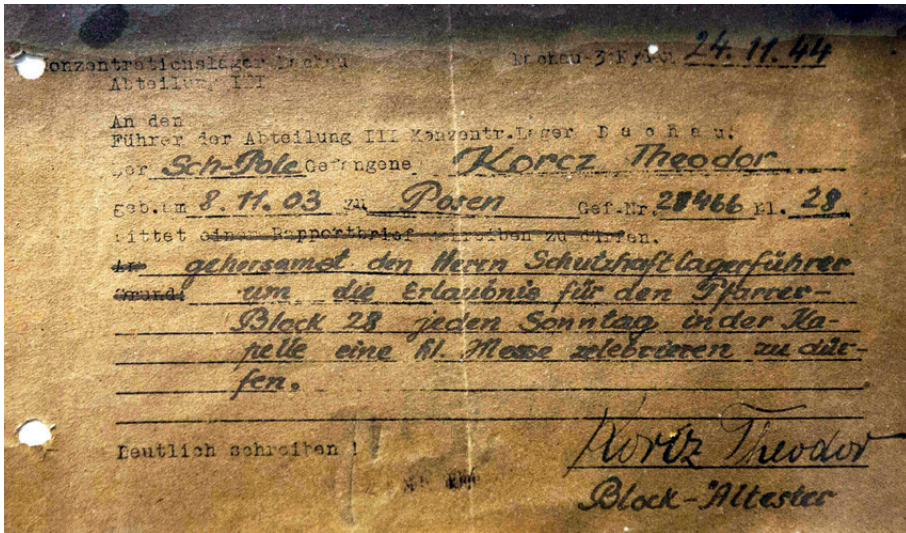 Konzentrationslager Dachau Dachau 3 K, den 24. 11. 44
Abteilung III
An den
Führer der Abteilung III Konzentr.Lager D a c h a u.
Der Sch-Pole Gefangene Korcz Theodor
geb.am 8. 11. 03 zu Posen Gef.Nr. 28466 Bl. 28
bittet einen Rapportbrief schreiben zu dürfen.
An gehorsamst den Herrn Schutzhaftlagerführer
Grund: um die Erlaubnis für den Pfarrer-
Block 28 jeden Sonntag in der Ka-
pelle eine hl. Messe zelebrieren zu dür-
fen.
Deutlich schreiben !
Korcz Theodor
Block-Ältester